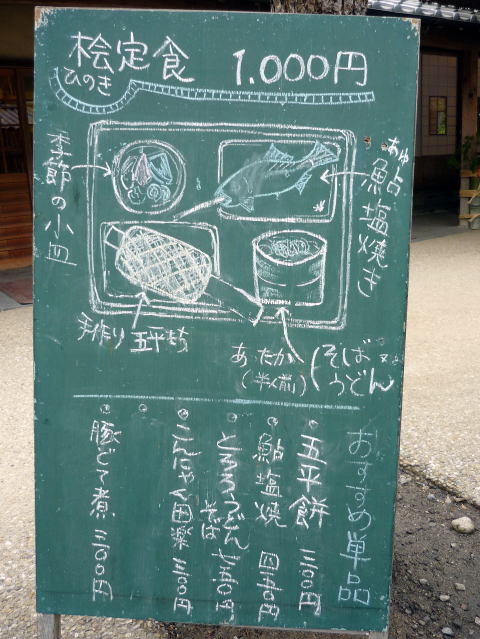 桧定食 1.000円
ひのき
季節の小皿
あゆ
鮎塩焼き
手作り五平餅
あたたか
(半人前)
そば又は
うどん
おすすめ単品
・五平餅 三〇〇円
・鮎塩焼 四五〇円
・とろろうどん
そば 七五〇円
・こんにゃく田楽 三〇〇円
・豚どて煮 三〇〇円